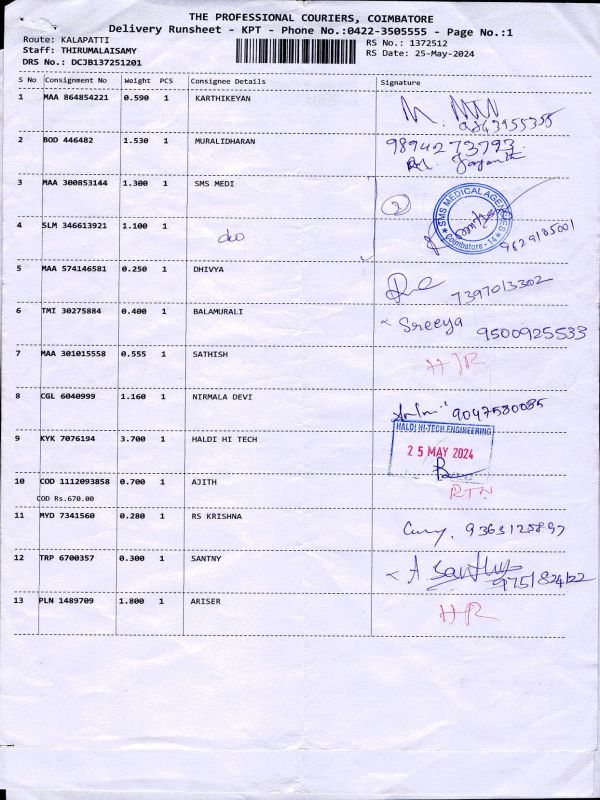 THE PROFESSIONAL COURIERS, COIMBATORE
Delivery Runsheet - KPT - Phone No.:0422-3505555 - Page No.:1
Route: KALAPATTI
RS No.: 1372512
Staff: THIRUMALAISAMY
RS Date: 25-May-2024
DRS No.: DCJB137251201
S No Consignment No Weight PCS Consignee Details Signature
1 MAA 864854221 0.590 1 KARTHIKEYAN
9843955355
2 BOD 446482 1.530 1 MURALIDHARAN 9894273793
3 MAA 300853144 1.300 1 SMS MEDI 2
SMS MEDICAL AGENCIES
Coimbatore - 14
4 SLM 346613921 1.100 1 do 9629185001
5 MAA 574146581 0.250 1 DHIVYA 7397013302
6 TMI 30275884 0.400 1 BALAMURALI Sreeya 9500925533
7 MAA 301015558 0.555 1 SATHISH
8 CGL 6040999 1.160 1 NIRMALA DEVI 9047580085
9 KYK 7076194 3.700 1 HALDI HI TECH
HALDI HI-TECH ENGINEERING
25 MAY 2024
10 COD 1112093858 0.700 1 AJITH RTN
COD Rs.670.00
11 MYD 7341560 0.280 1 RS KRISHNA 9363125897
12 TRP 6700357 0.300 1 SANTNY A Santhy
13 PLN 1489709 1.800 1 ARISER